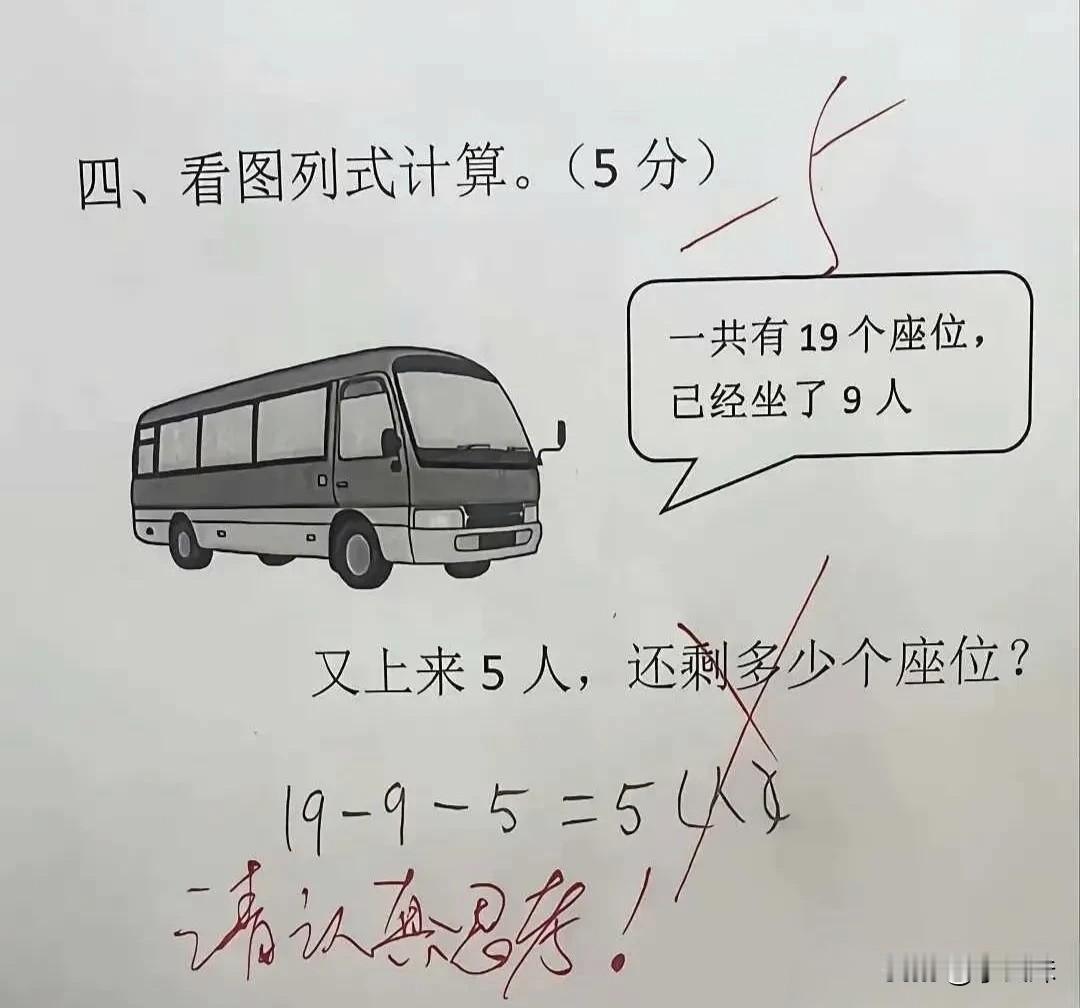 四、看图列式计算。（5 分）
-5
一共有 19 个座位，
已经坐了 9 人
又上来 5 人，还剩多少个座位？
19-9-5=5(人)
请认真思考！